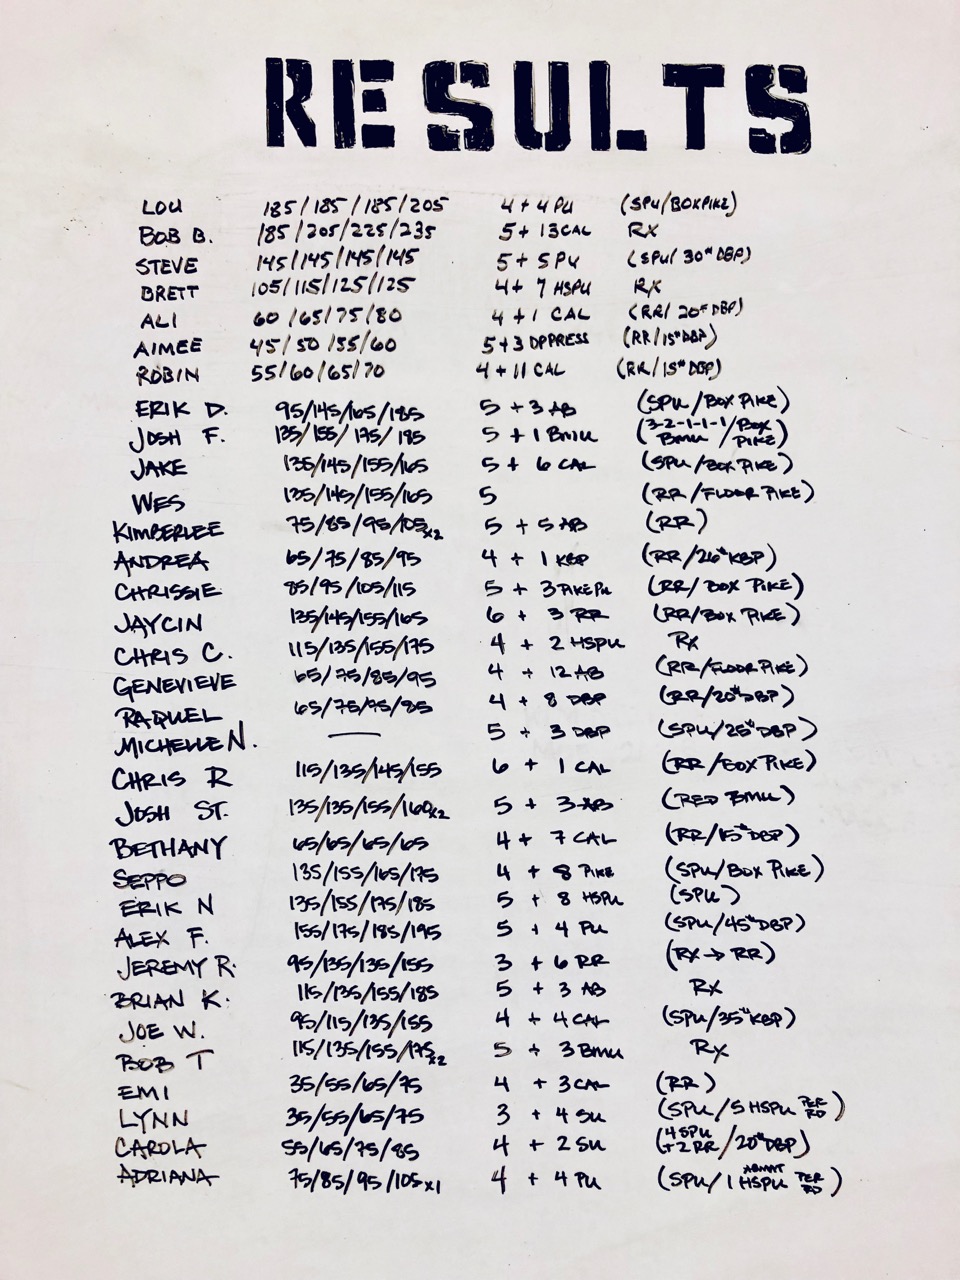 RESULTS
LOU 185/185/185/205 4 + 4 PU (SPU/BOXPIKE)
BOB B. 185/205/225/235 5 + 13 CAL RX
STEVE 145/145/145/145 5 + 5 PU (SPU/ 30# DBP)
BRETT 105/115/125/125 4 + 7 HSPU RX
ALI 60/65/75/80 4 + 1 CAL (RR/ 20# DBP)
AIMEE 45/50/55/60 5 + 3 DPPRESS (RR/15# DBP)
ROBIN 55/60/65/70 4 + 11 CAL (RR/15# DBP)
ERIK D. 95/145/165/185 5 + 3 AB (SPU/BOX PIKE)
JOSH F. 135/155/175/185 5 + 1 BMU (3-2-1-1-1 BMU/BOX PIKE)
JAKE 135/145/155/165 5 + 6 CAL (SPU/BOX PIKE)
WES 135/145/155/165 5 (RR/FLOOR PIKE)
KIMBERLEE 75/85/95/105x2 5 + 5 AB (RR)
ANDREA 65/75/85/95 4 + 1 KBP (RR/26# KBP)
CHRISSIE 85/95/105/115 5 + 3 PIKE PU (RR/BOX PIKE)
JAYCIN 135/145/155/165 6 + 3 RR (RR/BOX PIKE)
CHRIS C. 115/135/155/175 4 + 2 HSPU RX
GENEVIEVE 65/75/85/95 4 + 12 AB (RR/FLOOR PIKE)
RAQUEL 65/75/75/85 4 + 8 DBP (RR/20# DBP)
MICHELLE N. — 5 + 3 DBP (SPU/25# DBP)
CHRIS R 115/135/145/155 6 + 1 CAL (RR/BOX PIKE)
JOSH ST. 135/135/155/160x2 5 + 3 AB (RED BMU)
BETHANY 65/65/65/65 4 + 7 CAL (RR/15# DBP)
SEPPO 135/155/165/175 4 + 8 PIKE (SPU/BOX PIKE)
ERIK N 135/155/175/185 5 + 8 HSPU (SPU)
ALEX F. 155/175/185/195 5 + 4 PU (SPU/45# DBP)
JEREMY R. 95/135/135/155 3 + 6 RR (RX → RR)
BRIAN K. 115/135/155/185 5 + 3 AB RX
JOE W. 95/115/135/155 4 + 4 CAL (SPU/35# KBP)
BOB T 115/135/155/175x2 5 + 3 BMU RX
EMI 35/55/65/75 4 + 3 CAL (RR)
LYNN 35/55/65/75 3 + 4 SU (SPU/5 HSPU PER RD)
CAROLA 55/65/75/85 4 + 2 SU (4 SPU +2 RR/20# DBP)
ADRIANA 75/85/95/105x1 4 + 4 PU (SPU/1 ABMAT HSPU PER RD)